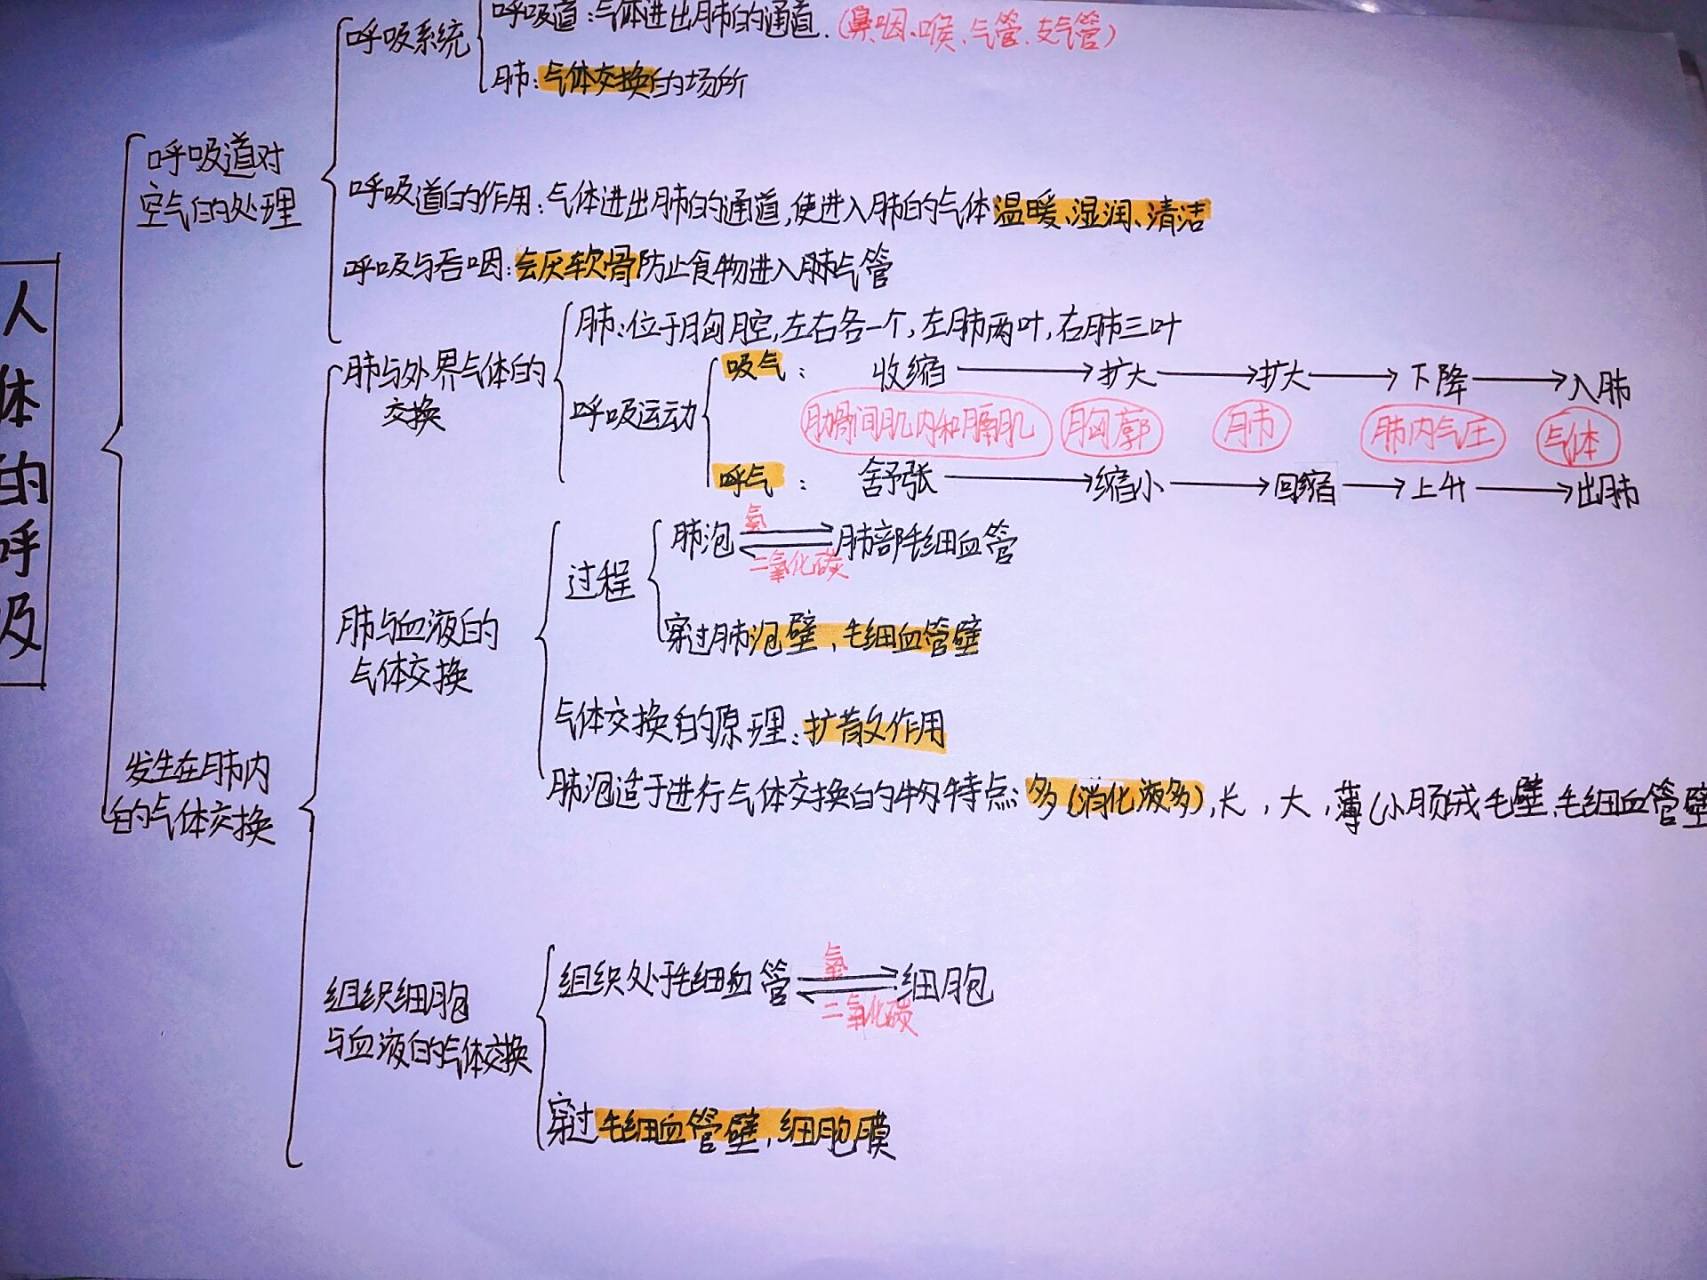 人体的呼吸
呼吸道对
空气的处理
呼吸系统
呼吸道:气体进出肺的通道.(鼻、咽、喉、气管、支气管)
肺:气体交换的场所
呼吸道的作用:气体进出肺的通道,使进入肺的气体温暖、湿润、清洁
呼吸与吞咽:会厌软骨防止食物进入肺气管
发生在肺内
的气体交换
肺与外界气体的
交换
肺:位于胸腔,左右各一个,左肺两叶,右肺三叶
呼吸运动
吸气: 收缩 扩大 扩大 下降 入肺
肋骨间肌内和膈肌 胸廓 肺 肺内气压 气体
呼气: 舒张 缩小 回缩 上升 出肺
肺与血液的
气体交换
过程
肺泡 氧 二氧化碳 肺部毛细血管
穿过肺泡壁、毛细血管壁
气体交换的原理:扩散作用
肺泡适于进行气体交换的特点:多(消化液多),长,大,薄(小肠绒毛壁、毛细血管壁
组织细胞
与血液的气体交换
组织处毛细血管 氧 二氧化碳 细胞
穿过毛细血管壁,细胞膜